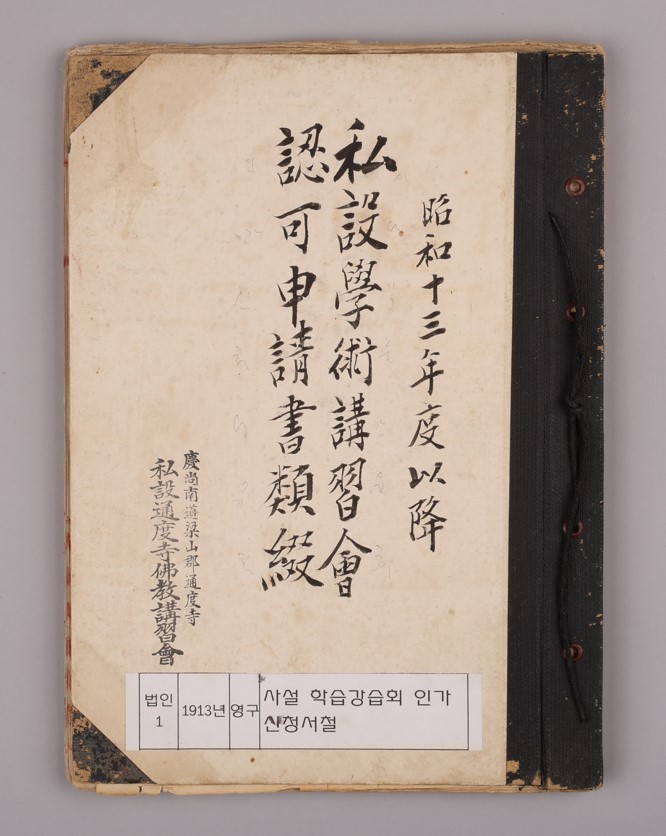 昭和十三年度以降
私設學術講習會
認可申請書類綴
慶尚南道梁山郡通度寺
私設通度寺佛教講習會
법인
1
1913년
영구
사설 학습강습회 인가
신청서철